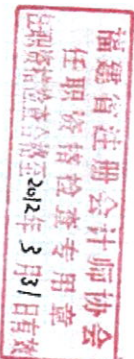 福建省注册会计师协会
任职资格检查专用章
任职资格检查合格至2012年3月31日有效